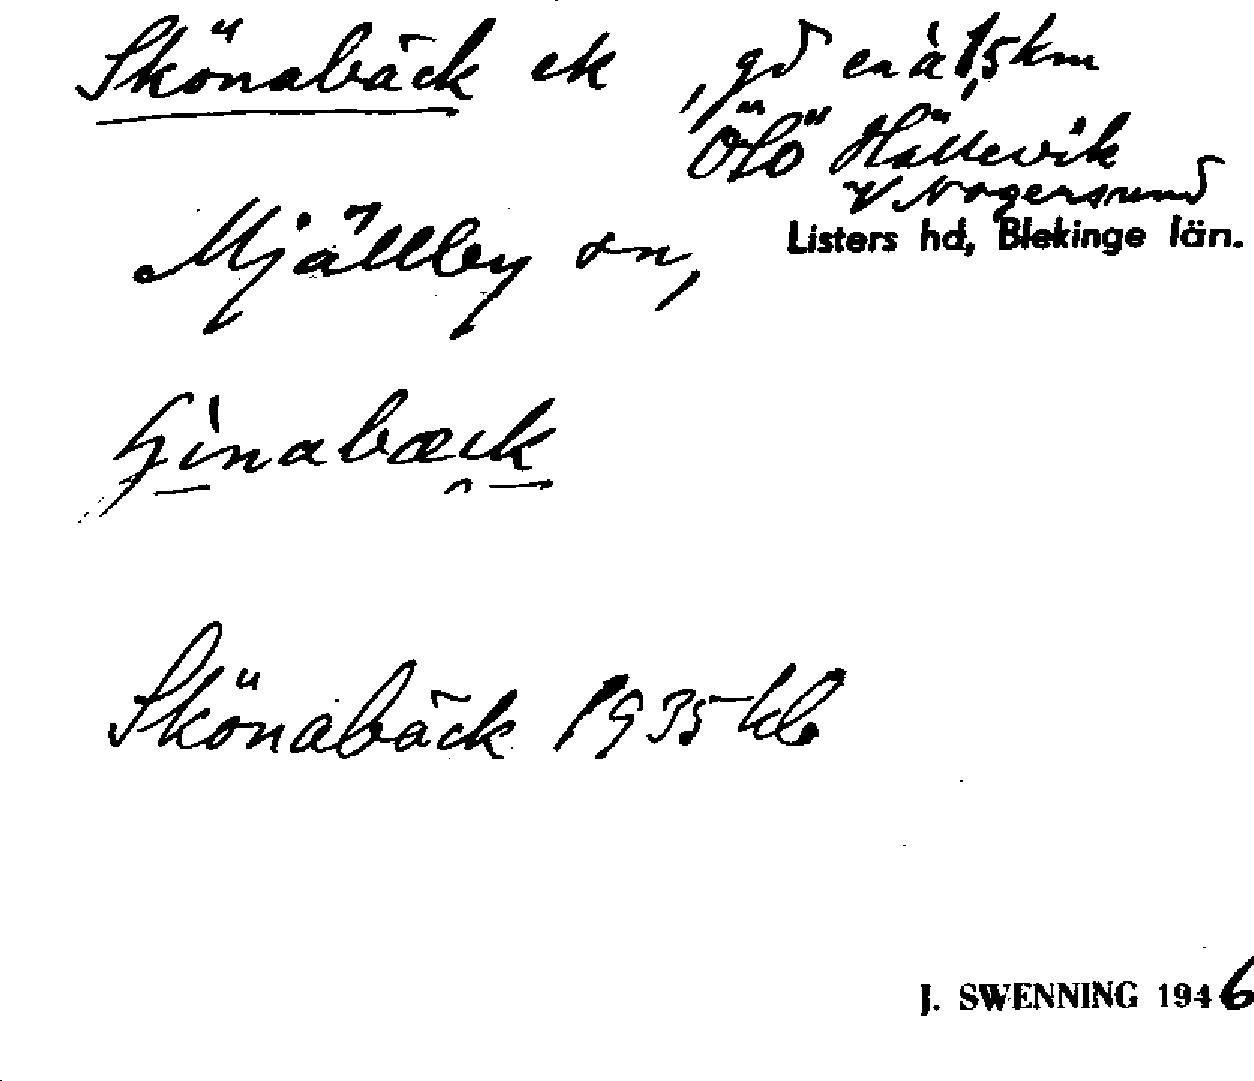 Skönabäck ek , gd ca à 1,5 km
ÖSÖ Hällevik
V Nogersund
Mjällby sn,
Listers hd, Blekinge län.
inabæck
Skönabäck 1935 kb
J. SWENNING 1946